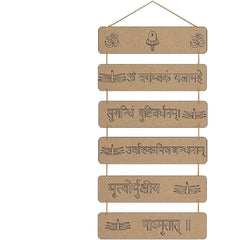 ॐ
ॐ त्र्यम्बकं यजामहे
सुगन्धिं पुष्टिवर्धनम्।
उर्वारुकमिव बन्धनान्
मृत्योर्मुक्षीय
माऽमृतात्॥